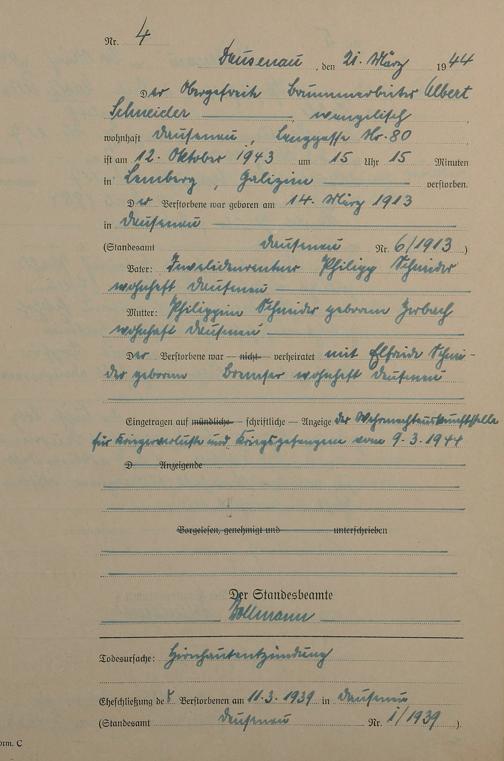 Nr. 4
Dausenau, den 21. März 1944
Der Obergefreite Albert
Schneider evangelisch
wohnhaft Dausenau, Langgasse Nr. 80
ist am 12. Oktober 1943 um 15 Uhr 15 Minuten
in Lemberg, Galizien verstorben.
Der Verstorbene war geboren am 14. März 1913
in Dausenau
(Standesamt Dausenau Nr. 6/1913)
Vater: Invalidenrentner Philipp Schneider
wohnhaft Dausenau
Mutter: Philippine Schneider geborene Zerbach
wohnhaft Dausenau
Der Verstorbene war – nicht – verheiratet mit Elfriede Schnei-
der geborene Bremser wohnhaft Dausenau
Eingetragen auf mündliche – schriftliche – Anzeige der Wehrmachtauskunftstelle
für Kriegerverluste und Kriegsgefangene vom 9.3.1944
D Anzeigende
Vorgelesen, genehmigt und unterschrieben
Der Standesbeamte
Todesursache: Hirnhautentzündung
Eheschließung des Verstorbenen am 11.3.1939 in Dausenau
(Standesamt Dausenau Nr. 1/1939).
orm. C